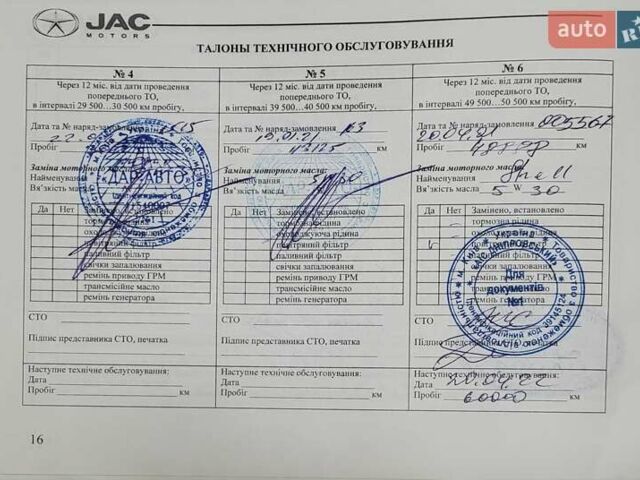 JAC
MOTORS
auto
ТАЛОНЫ ТЕХНІЧНОГО ОБСЛУГОВУВАННЯ
№ 4
Через 12 міс. від дати проведення
попереднього ТО,
в інтервалі 29 500…30 500 км пробігу,
Дата та № наряд-замовлення
Пробіг
Заміна моторного масла:
Найменування
В'язкість масла
ДАР-АВТО
Да Нет Замінено, встановлено
фільтр
паливний фільтр
свічки запалювання
ремінь приводу ГРМ
трансмісійне масло
ремінь генератора
СТО
Підпис представника СТО, печатка
Наступне технічне обслуговування:
Дата
Пробіг км
№ 5
Через 12 міс. від дати проведення
попереднього ТО,
в інтервалі 39 500…40 500 км пробігу,
Дата та № наряд-замовлення
19.01.21
Пробіг
Заміна моторного масла:
Найменування
В'язкість масла
Да Нет Замінено, встановлено
тормозна рідина
охолоджуюча рідина
повітряний фільтр
паливний фільтр
свічки запалювання
ремінь приводу ГРМ
трансмісійне масло
ремінь генератора
СТО
Підпис представника СТО, печатка
Наступне технічне обслуговування:
Дата
Пробіг км
№ 6
Через 12 міс. від дати проведення
попереднього ТО,
в інтервалі 49 500…50 500 км пробігу,
Дата та № наряд-замовлення 005567
20.04.21
Пробіг
Заміна моторного масла:
Найменування Shell
В'язкість масла 5 W 30
Да Нет Замінено, встановлено
тормозна рідина
Україна
Для
документів
№1
СТО
Підпис представника
Наступне технічне обслуговування:
Дата 20.04.22
Пробіг 60000 км
16